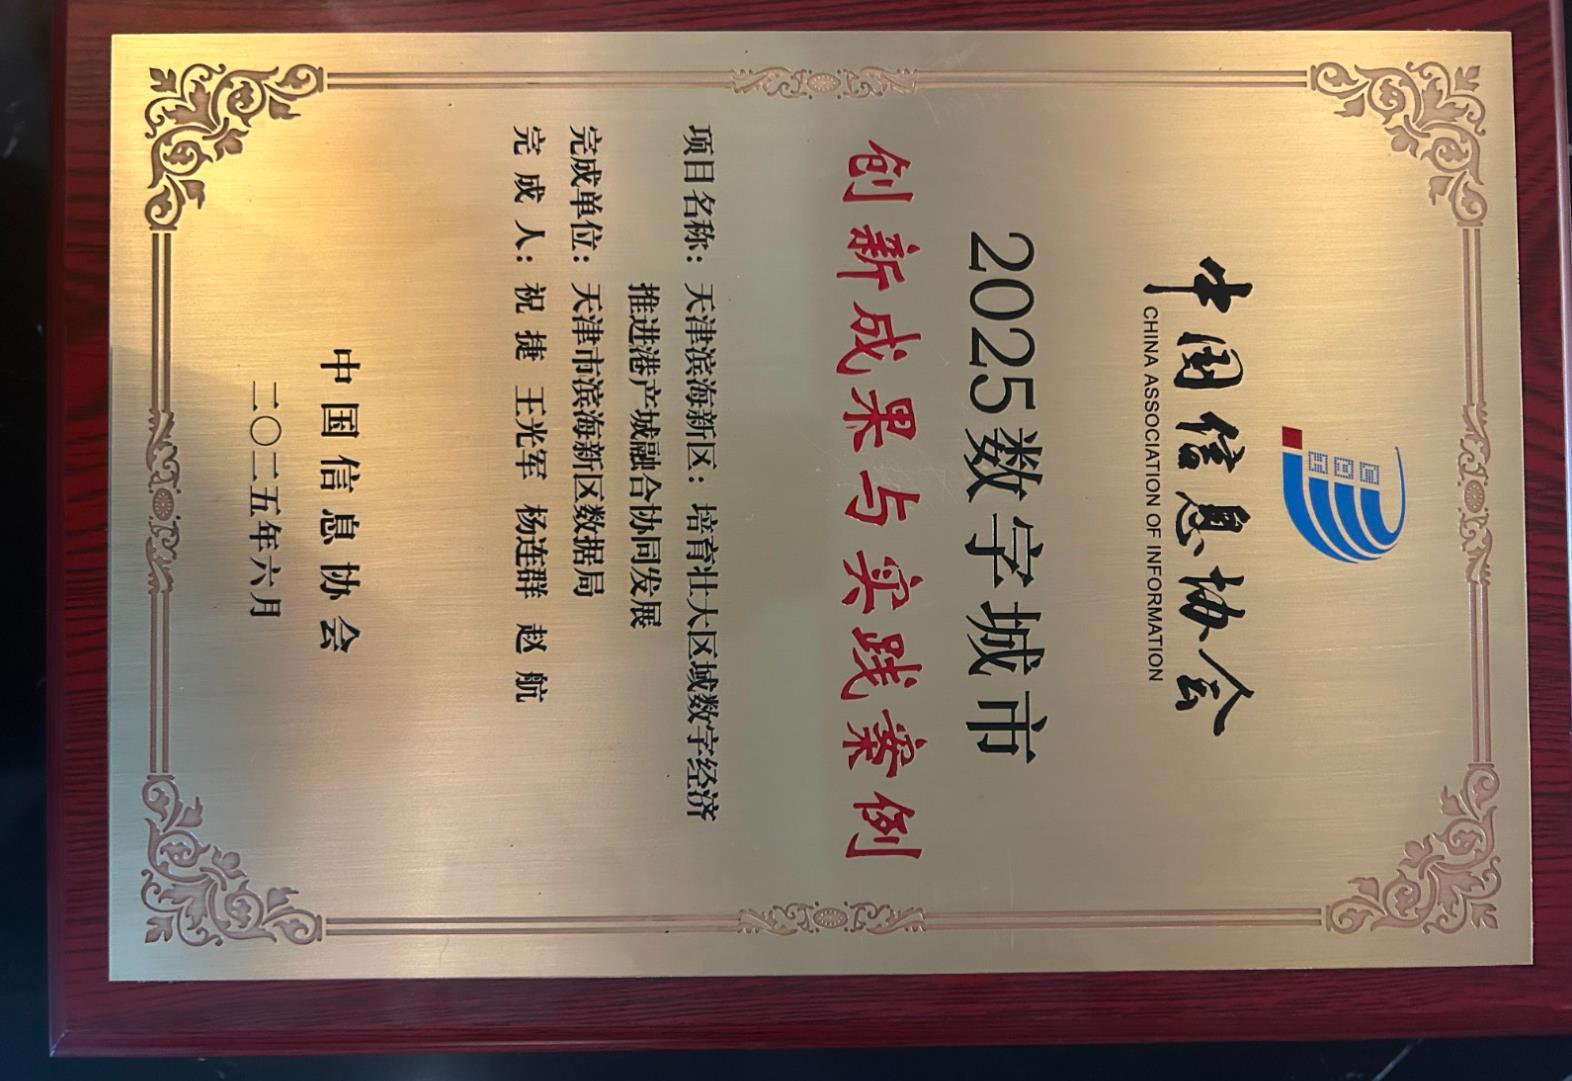 中国信息协会
CHINA ASSOCIATION OF INFORMATION
2025数字城市
创新成果与实践案例
项目名称：天津滨海新区：培育壮大区域数字经济
推进港产城融合协同发展
完成单位：天津市滨海新区数据局
完成人：祝捷 王光军 杨连群 赵航
中国信息协会
二〇二五年六月